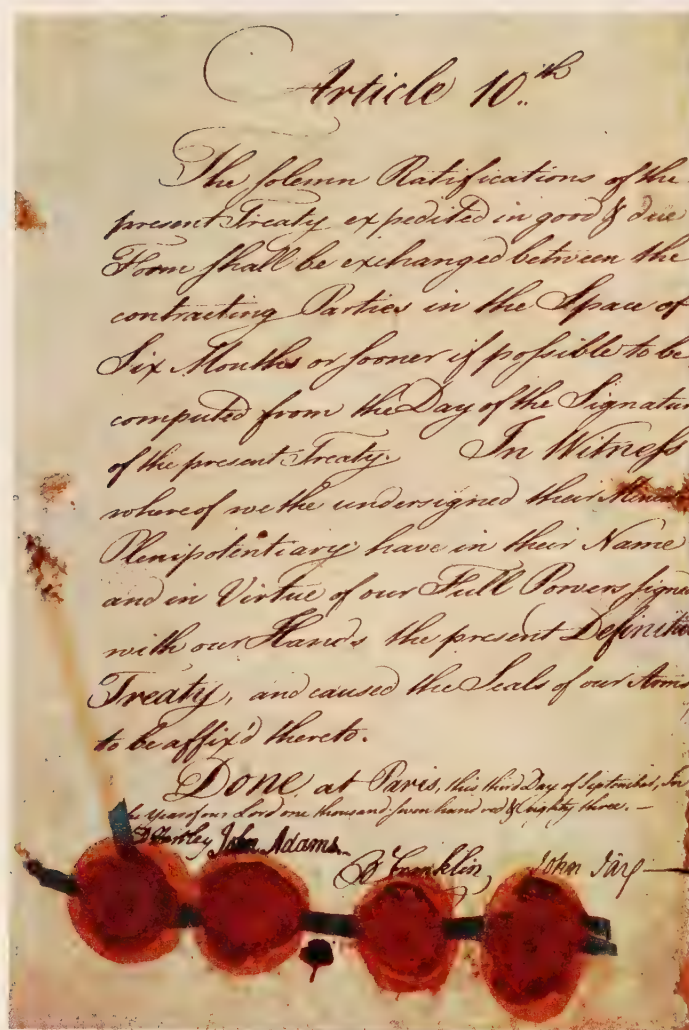 Article 10.th
The solemn Ratifications of the
present Treaty expedited in good & due
Form shall be exchanged between the
contracting Parties in the Space of
Six Months or sooner if possible to be
computed from the Day of the Signatur
of the present Treaty. In Witness
whereof we the undersigned their
Plenipotentiary have in their Name
and in Virtue of our Full Powers signe
with our Hands the present Definitiv
Treaty, and caused the Seals of our Arms
to be affix'd thereto.
Done at Paris, this third Day of September, In
the year of our Lord one thousand seven hundred & eighty three.—
D Hartley John Adams
B Franklin John Jay—